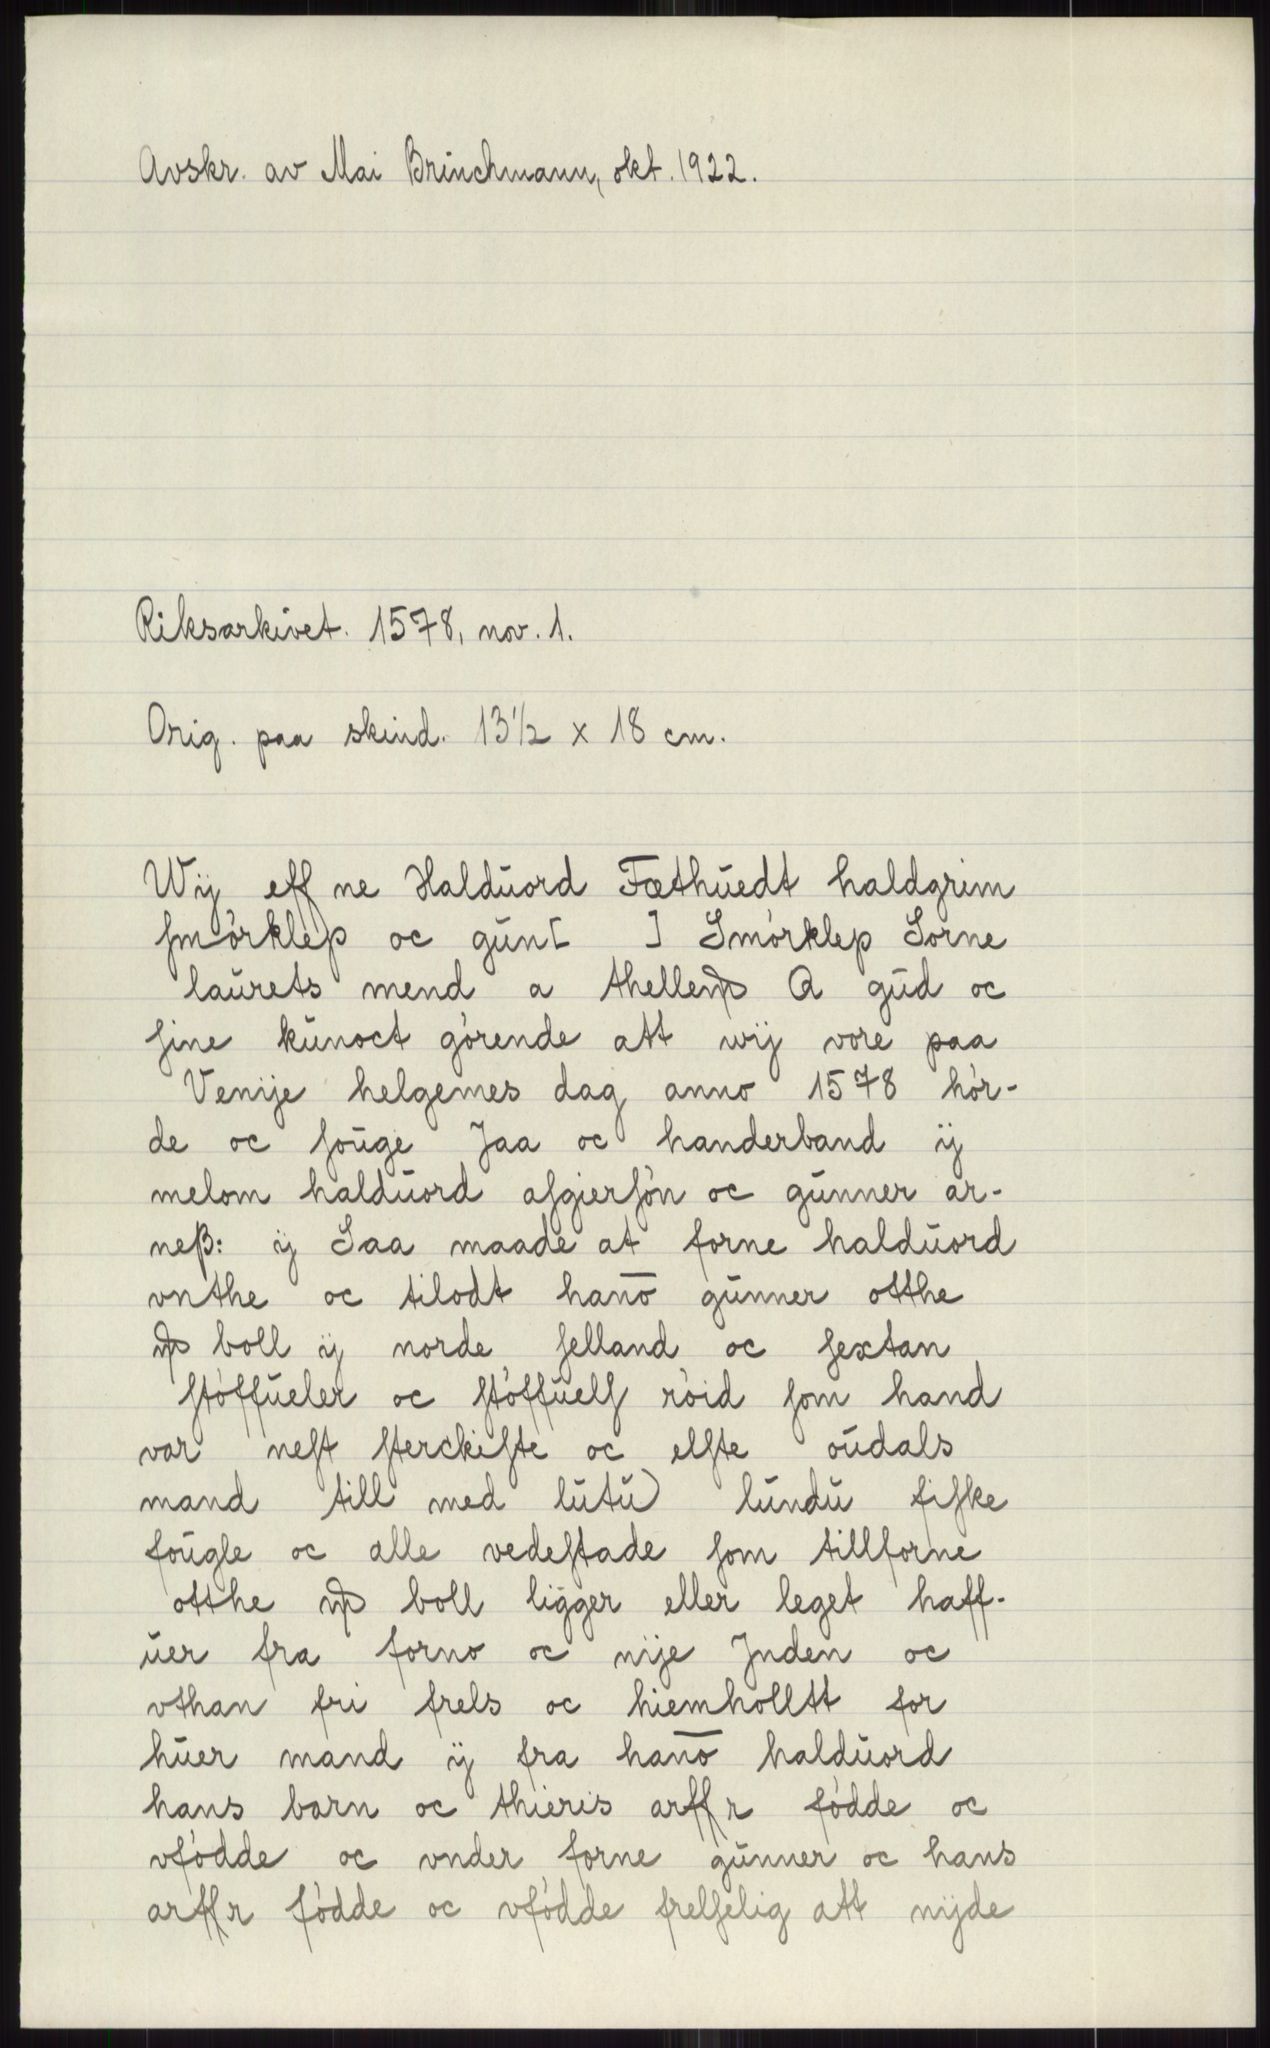 Avskr. av Mai Brinchmann, okt. 1922.
Riksarkivet. 1578, nov. 1.
Orig. paa skind. 13½ x 18 cm.
Wij eff ne Halduord Fæthuedt haldgrim
smórklep oc gun[ ] Smórklep Sorne
laurets mend a Q gud oc
sine kunoct górende att wij vore paa
Venije helgemes dag anno 1578 hór-
de oc souge Jaa oc handerband ij
melom halduord asgiersón oc gunner ar-
neß: ij Saa maade at forne halduord
vnthe oc tilodt hano gunner otthe
boll ij norde selland oc sextan
stóffueler oc stóffuels róid som hand
var nest sterckiste oc elste oudals
mand till med lutu lundu fiske
fougle oc alle vedestade som tillforne
otthe boll ligger eller leget haff-
uer fra forno oc nije Jnden oc
vthan fri frels oc hiemholltt for
huer mand ij fra hano halduord
hans barn oc thieris arffr fódde oc
vfódde oc vnder forne gunner oc hans
arffr fódde oc vfódde frelselig att nijde